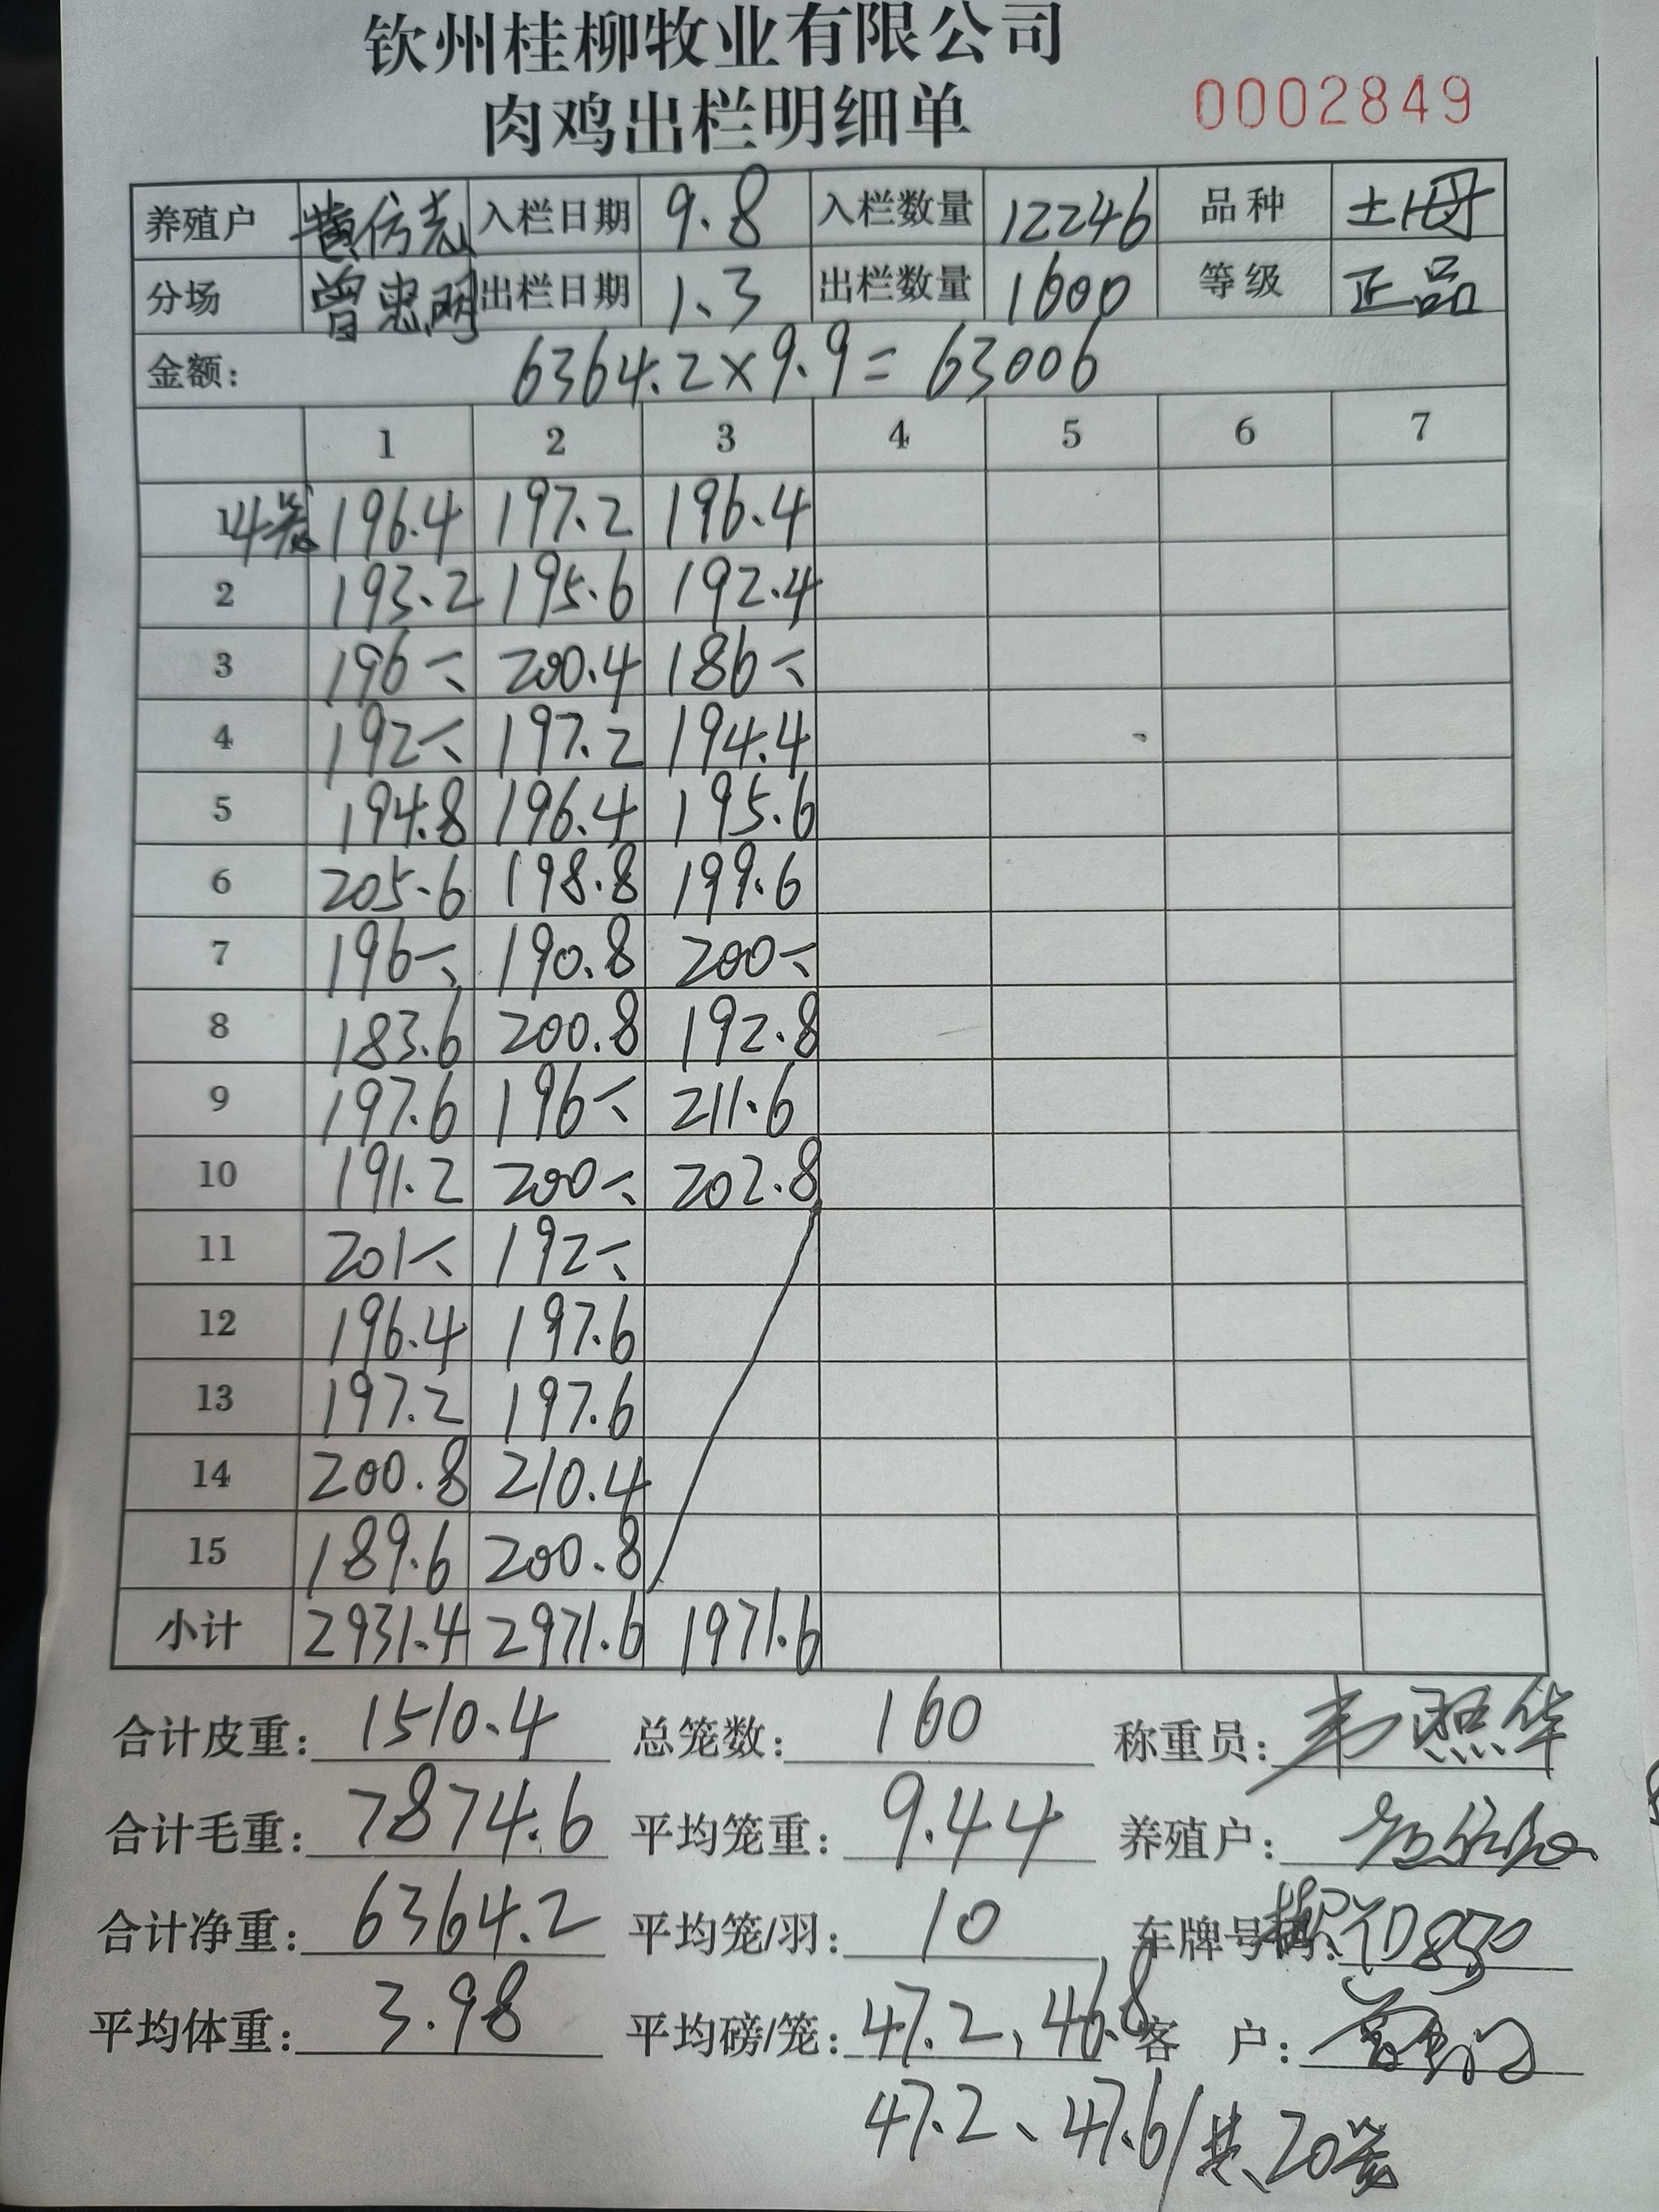 钦州桂柳牧业有限公司
肉鸡出栏明细单 0002849
养殖户 黄仿志 入栏日期 9.8 入栏数量 12246 品种 土1母
分场 曾忠明 出栏日期 1.3 出栏数量 1600 等级 正品
金额: 6364.2×9.9=63006
1 2 3 4 5 6 7
1 4笼 196.4 197.2 196.4
2 193.2 195.6 192.4
3 196 200.4 186
4 192 197.2 194.4
5 194.8 196.4 195.6
6 205.6 198.8 199.6
7 196 190.8 200
8 183.6 200.8 192.8
9 197.6 196 211.6
10 191.2 200 202.8
11 201 192
12 196.4 197.6
13 197.2 197.6
14 200.8 210.4
15 189.6 200.8
小计 2931.4 2971.6 1971.6
合计皮重: 1510.4 总笼数: 160 称重员: 韦照华
合计毛重: 7874.6 平均笼重: 9.44 养殖户:
合计净重: 6364.2 平均笼/羽: 10 车牌号码: YD850
平均体重: 3.98 平均磅/笼: 47.2、46.8 客 户:
47.2、47.6/共20笼